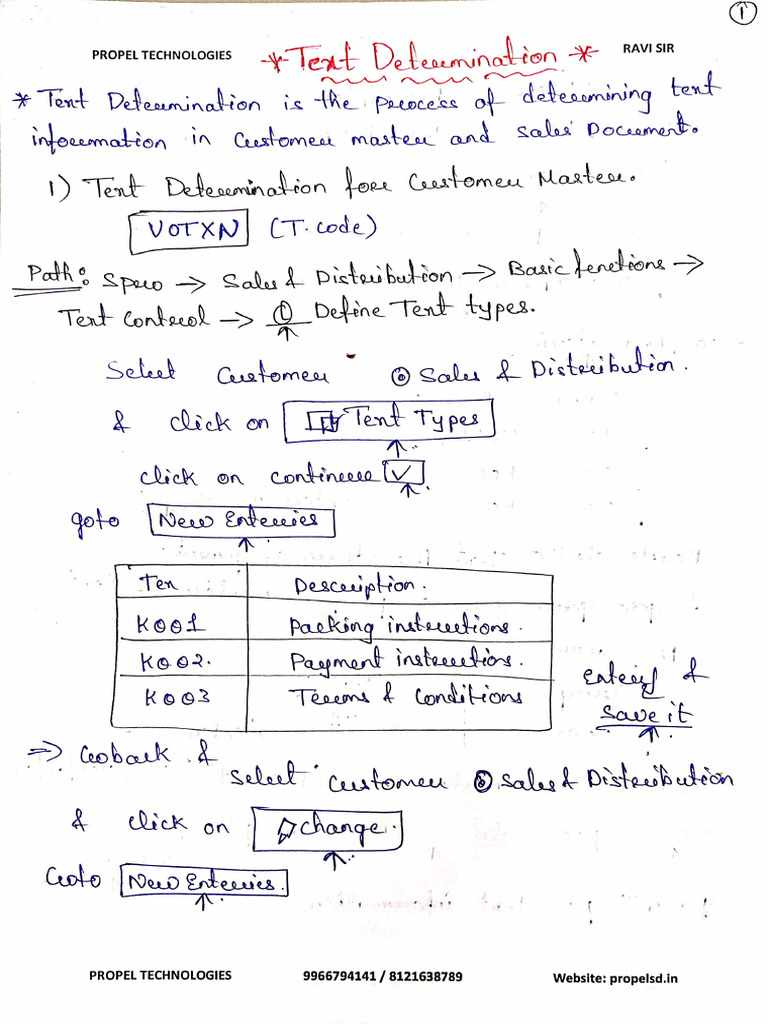 1
PROPEL TECHNOLOGIES
RAVI SIR
* Text Determination *
* Text Determination is the process of determining text
information in Customer master and Sales Document.
1) Text Determination for Customer Master.
VOTXN (T.code)
Path: Spro → Sales & Distribution → Basic functions →
Text Control → ① Define Text types.
Select Customer ⊙ Sales & Distribution.
& click on Text Types
click on continue ✓
goto New Entries
Tex Description.
K001 Packing instructions.
K002. Payment instructions.
K003 Terms & Conditions
Entery &
Save it
⇒ Goback &
Select Customer ⊙ Sales & Distribution
& click on change.
Goto New Entries.
PROPEL TECHNOLOGIES 9966794141 / 8121638789 Website: propelsd.in